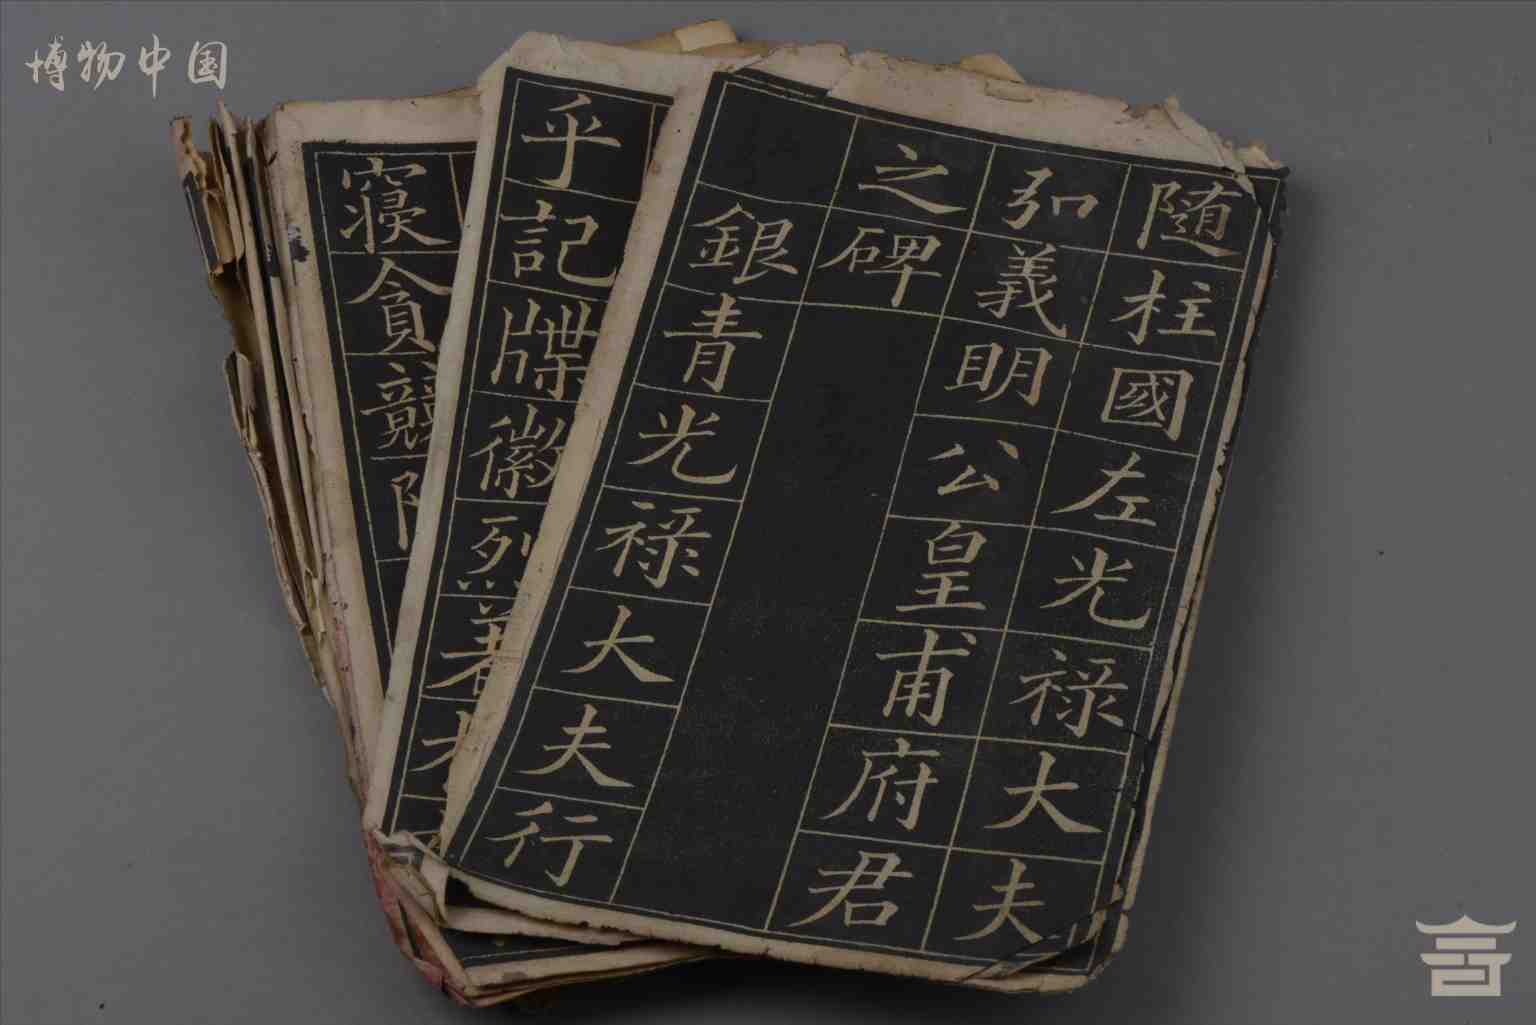 博物中国
随柱國左光禄大夫
弘義明公皇甫府君
之碑
銀青光禄大夫行
乎記牒徽烈著
寝貪競